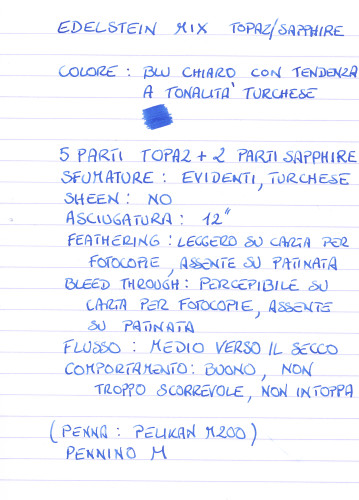 EDELSTEIN MIX TOPAZ/SAPPHIRE
COLORE : BLU CHIARO CON TENDENZA
A TONALITA' TURCHESE
5 PARTI TOPAZ + 2 PARTI SAPPHIRE
SFUMATURE : EVIDENTI, TURCHESE
SHEEN : NO
ASCIUGATURA : 12"
FEATHERING : LEGGERO SU CARTA PER
FOTOCOPIE, ASSENTE SU PATINATA
BLEED THROUGH : PERCEPIBILE SU
CARTA PER FOTOCOPIE, ASSENTE
SU PATINATA
FLUSSO : MEDIO VERSO IL SECCO
COMPORTAMENTO : BUONO, NON
TROPPO SCORREVOLE, NON INTOPPA
(PENNA : PELIKAN M200)
PENNINO M